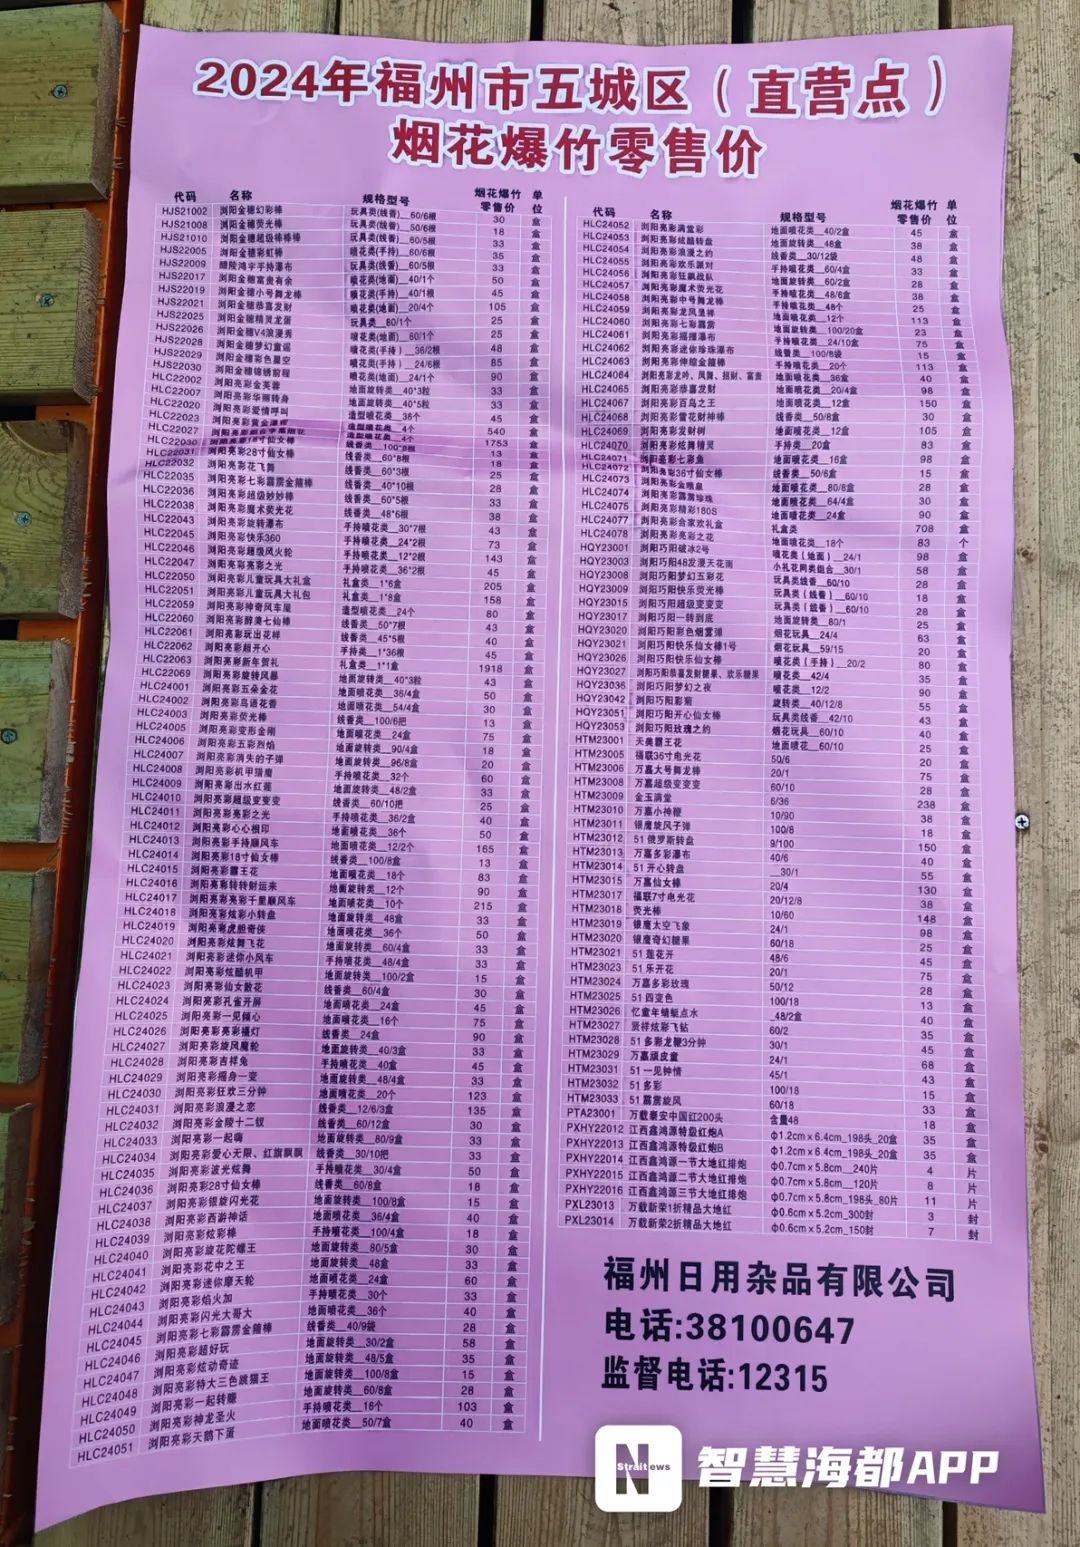 2024年福州市五城区(直营点)
烟花爆竹零售价
代码 名称 规格型号 烟花爆竹零售价 单位
HJS21002 浏阳金穗幻彩棒 玩具类(线香)__60/6根 30 盒
HJS21008 浏阳金穗荧光棒 玩具类(线香)__50/6根 18 盒
HJS21010 浏阳金穗超级棒棒棒 玩具类(线香)__60/5根 33 盒
HJS22005 浏阳金穗彩虹棒 喷花类(手持)__60/6根 35 盒
HJS22009 醴陵鸿宇手持瀑布 玩具类(线香)__60/5根 33 盒
HJS22017 浏阳金穗富贵有余 喷花类(地面)__40/1个 50 盒
HJS22019 浏阳金穗小号舞龙棒 喷花类(手持)__40/1根 45 盒
HJS22021 浏阳金穗恭喜发财 喷花类(地面)__20/4个 105 盒
HJS22025 浏阳金穗精灵龙蛋 玩具类__80/1个 25 盒
HJS22026 浏阳金穗V4浪漫秀 喷花类(地面)__60/1个 25 盒
HJS22028 浏阳金穗梦幻童谣 喷花类(手持)__36/2根 48 盒
HJS22029 浏阳金穗彩色星空 喷花类(手持)__24/6根 85 盒
HJS22030 浏阳金穗锦绣前程 喷花类(地面)__24/1个 90 盒
HLC22002 浏阳亮彩金芙蓉 地面旋转类__40*3粒 33 盒
HLC22007 浏阳亮彩华丽转身 地面旋转类__40*5粒 33 盒
HLC22020 浏阳亮彩爱情呼叫 造型喷花类__36个 45 盒
HLC22023 浏阳亮彩黄金瀑布 造型喷花类__4个 540 盒
HLC22027 浏阳亮彩 造型喷花类__4个 1753 盒
HLC22030 浏阳亮彩18寸仙女棒 线香类__100*8根 13 盒
HLC22031 浏阳亮彩28寸仙女棒 线香类__60*8根 18 盒
HLC22032 浏阳亮彩花飞舞 线香类__60*3根 25 盒
HLC22035 浏阳亮彩七彩霹雳金箍棒 线香类__40*10根 28 盒
HLC22036 浏阳亮彩超级妙妙棒 线香类__60*5根 33 盒
HLC22038 浏阳亮彩魔术荧光花 线香类__48*6根 38 盒
HLC22043 浏阳亮彩旋转瀑布 手持喷花类__30*7根 43 盒
HLC22045 浏阳亮彩快乐360 手持喷花类__24*2根 73 盒
HLC22046 浏阳亮彩超级风火轮 手持喷花类__12*2根 143 盒
HLC22047 浏阳亮彩亮彩之光 手持喷花类__36*2根 45 盒
HLC22050 浏阳亮彩儿童玩具大礼盒 礼盒类__1*6盒 205 盒
HLC22051 浏阳亮彩儿童玩具大礼包 礼盒类__1*8盒 158 盒
HLC22059 浏阳亮彩神奇风车屋 造型喷花类__24个 80 盒
HLC22060 浏阳亮彩醇美七仙棒 线香类__50*7根 43 盒
HLC22061 浏阳亮彩玩出花样 线香类__45*5根 40 盒
HLC22062 浏阳亮彩超开心 手持类__1*36根 45 盒
HLC22063 浏阳亮彩新年贺礼 礼盒类__1*1盒 1918 盒
HLC22069 浏阳亮彩旋转风暴 地面旋转类__40*3粒 43 盒
HLC24001 浏阳亮彩五朵金花 地面喷花类__36/4盒 50 盒
HLC24002 浏阳亮彩鸟语花香 地面喷花类__54/4盒 30 盒
HLC24003 浏阳亮彩荧光棒 线香类__100/6把 13 盒
HLC24005 浏阳亮彩变形金刚 地面喷花类__24盒 75 盒
HLC24006 浏阳亮彩五彩烈焰 地面旋转类__90/4盒 18 盒
HLC24007 浏阳亮彩消失的子弹 地面旋转类__96/8盒 20 盒
HLC24008 浏阳亮彩机甲猎魔 手持喷花类__32个 60 盒
HLC24009 浏阳亮彩出水红莲 地面旋转类__48/2盒 33 盒
HLC24010 浏阳亮彩超级变变变 线香类__60/10把 25 盒
HLC24011 浏阳亮彩亮彩之光 手持喷花类__36/2盒 40 盒
HLC24012 浏阳亮彩心心相印 地面喷花类__36个 50 盒
HLC24013 浏阳亮彩手持顺风车 地面喷花类__12/2个 165 盒
HLC24014 浏阳亮彩18寸仙女棒 线香类__100/8盒 13 盒
HLC24015 浏阳亮彩霸王花 地面喷花类__18个 83 盒
HLC24016 浏阳亮彩转转财运来 地面旋转类__12个 90 盒
HLC24017 浏阳亮彩亮彩千里顺风车 地面喷花类__10个 215 盒
HLC24018 浏阳亮彩炫彩小转盘 地面旋转类__48盒 33 盒
HLC24019 浏阳亮彩虎胆奇侠 地面喷花类__36个 50 盒
HLC24020 浏阳亮彩炫舞飞花 地面旋转类__60/4盒 33 盒
HLC24021 浏阳亮彩迷你小风车 手持喷花类__48/4盒 33 盒
HLC24022 浏阳亮彩炫酷机甲 地面旋转类__100/2盒 15 盒
HLC24023 浏阳亮彩仙女散花 线香类__60/4盒 30 盒
HLC24024 浏阳亮彩孔雀开屏 地面喷花类__24盒 45 盒
HLC24025 浏阳亮彩一见倾心 地面喷花类__16个 75 盒
HLC24026 浏阳亮彩亮彩福灯 线香类__24盒 90 盒
HLC24027 浏阳亮彩旋风魔轮 地面旋转类__40/3盒 33 盒
HLC24028 浏阳亮彩吉祥兔 手持喷花类__40盒 45 盒
HLC24029 浏阳亮彩摇身一变 地面旋转类__48/4盒 33 盒
HLC24030 浏阳亮彩狂欢三分钟 地面喷花类__20个 123 盒
HLC24031 浏阳亮彩浪漫之恋 线香类__12/6/3盒 135 盒
HLC24032 浏阳亮彩金陵十二钗 线香类__60/12盒 30 盒
HLC24033 浏阳亮彩一起嗨 地面旋转类__80/9盒 33 盒
HLC24034 浏阳亮彩爱心无限、红旗飘飘 线香类__30/10把 35 盒
HLC24035 浏阳亮彩波光炫舞 手持喷花类__30/4盒 50 盒
HLC24036 浏阳亮彩28寸仙女棒 线香类__60/8盒 18 盒
HLC24037 浏阳亮彩银旋闪光花 地面旋转类__100/8盒 15 盒
HLC24038 浏阳亮彩西游神话 地面喷花类__36/4盒 40 盒
HLC24039 浏阳亮彩炫彩棒 手持喷花类__100/4盒 18 盒
HLC24040 浏阳亮彩旋花陀螺王 地面旋转类__80/5盒 30 盒
HLC24041 浏阳亮彩花中之王 地面旋转类__48盒 33 盒
HLC24042 浏阳亮彩迷你摩天轮 地面喷花类__24盒 60 盒
HLC24043 浏阳亮彩焰火加 手持喷花类__30个 33 盒
HLC24044 浏阳亮彩闪光大哥大 地面喷花类__36个 40 盒
HLC24045 浏阳亮彩七彩霹雳金箍棒 线香类__40/9袋 28 盒
HLC24046 浏阳亮彩超好玩 地面旋转类__30/2盒 58 盒
HLC24047 浏阳亮彩炫动奇迹 地面旋转类__48/5盒 35 盒
HLC24048 浏阳亮彩特大三色跳猫王 地面旋转类__100/8盒 15 盒
HLC24049 浏阳亮彩一起转赚 地面旋转类__60/8盒 28 盒
HLC24050 浏阳亮彩神龙圣火 手持喷花类__16个 103 盒
HLC24051 浏阳亮彩天鹅下蛋 地面喷花类__50/7盒 40 盒
代码 名称 规格型号 烟花爆竹零售价 单位
HLC24052 浏阳亮彩满堂彩 地面喷花类__40/2盒 45 盒
HLC24053 浏阳亮彩炫酷转盘 地面旋转类__48盒 38 盒
HLC24054 浏阳亮彩浪漫之约 线香类__30/12袋 48 盒
HLC24055 浏阳亮彩欢乐派对 手持喷花类__60/4盒 33 盒
HLC24056 浏阳亮彩狂飙战队 地面旋转类__60/2盒 28 盒
HLC24057 浏阳亮彩魔术荧光花 手持喷花类__48/6盒 38 盒
HLC24058 浏阳亮彩中号舞龙棒 手持喷花类__48个 25 盒
HLC24059 浏阳亮彩龙凤呈祥 地面喷花类__12个 113 盒
HLC24060 浏阳亮彩七彩霹雳 地面旋转类__100/20盒 23 盒
HLC24061 浏阳亮彩摇摆瀑布 手持喷花类__24/10盒 75 盒
HLC24062 浏阳亮彩迷你珍珠瀑布 线香类__100/8袋 15 盒
HLC24063 浏阳亮彩伸缩金箍棒 手持喷花类__20个 113 盒
HLC24064 浏阳亮彩龙吟、凤舞、招财、富贵 地面喷花类__36盒 40 盒
HLC24065 浏阳亮彩恭喜发财 地面喷花类__20/4盒 98 盒
HLC24067 浏阳亮彩百鸟之王 地面喷花类__12盒 150 盒
HLC24068 浏阳亮彩雷花财神棒 线香类__50/8盒 30 盒
HLC24069 浏阳亮彩发财树 地面喷花类__12盒 105 盒
HLC24070 浏阳亮彩炫舞精灵 手持类__20盒 83 盒
HLC24071 浏阳亮彩七彩鱼 地面喷花类__16盒 98 盒
HLC24072 浏阳亮彩36寸仙女棒 线香类__50/6盒 15 盒
HLC24073 浏阳亮彩金喷泉 地面喷花类__80/8盒 28 盒
HLC24074 浏阳亮彩霹雳珍珠 地面喷花类__64/4盒 30 盒
HLC24075 浏阳亮彩精彩180S 地面喷花类__24盒 90 盒
HLC24077 浏阳亮彩合家欢礼盒 礼盒类 708 盒
HLC24078 浏阳亮彩亮彩之花 地面喷花类__18个 83 个
HQY23001 浏阳巧阳破冰2号 喷花类(地面)__24/1 98 盒
HQY23003 浏阳巧阳48发漫天花雨 小礼花同类组合__30/1 58 盒
HQY23008 浏阳巧阳梦幻五彩花 玩具类线香__60/10 28 盒
HQY23009 浏阳巧阳快乐荧光棒 玩具类(线香)__60/10 18 盒
HQY23015 浏阳巧阳超级变变变 玩具类(线香)__60/10 28 盒
HQY23017 浏阳巧阳一转到底 地面旋转类__80/1 25 盒
HQY23020 浏阳巧阳彩色烟雾弹 烟花玩具__24/4 63 盒
HQY23021 浏阳巧阳快乐仙女棒1号 烟花玩具__59/15 20 盒
HQY23026 浏阳巧阳快乐仙女棒 喷花类(手持)__20/2 80 盒
HQY23027 浏阳巧阳恭喜发财糖果、欢乐糖果 喷花类__42/4 35 盒
HQY23036 浏阳巧阳梦幻之夜 喷花类__12/2 90 盒
HQY23042 浏阳巧阳影菊 旋转类__40/12/8 55 盒
HQY23051 浏阳巧阳开心仙女棒 玩具类线香__42/10 43 盒
HQY23053 浏阳巧阳玫瑰之约 烟花玩具__60/10 40 盒
HTM23001 天美霸王花 地面喷花__60/10 25 盒
HTM23005 福联36寸电光花 50/6 20 盒
HTM23006 万嘉大号舞龙棒 20/1 75 盒
HTM23008 万嘉超级变变变 60/10 28 盒
HTM23009 金玉满堂 6/36 238 盒
HTM23010 万嘉小神鞭 10/90 38 盒
HTM23011 银魔旋风子弹 100/8 18 盒
HTM23012 51俄罗斯转盘 9/100 150 盒
HTM23013 万嘉多彩瀑布 40/6 40 盒
HTM23014 51开心转盘 __30/1 55 盒
HTM23015 万嘉仙女棒 20/4 130 盒
HTM23017 福联7寸电光花 20/12/8 38 盒
HTM23018 荧光棒 10/60 148 盒
HTM23019 银魔太空飞象 24/1 98 盒
HTM23020 银魔奇幻糖果 60/18 25 盒
HTM23021 51莲花开 48/6 45 盒
HTM23023 51乐开花 20/1 75 盒
HTM23024 万嘉多彩玫瑰 50/12 28 盒
HTM23025 51四变色 100/18 13 盒
HTM23026 忆童年蜻蜓点水 _48/2盒 40 盒
HTM23027 贤祥炫彩飞钻 60/2 35 盒
HTM23028 51多彩龙鞭3分钟 30/1 45 盒
HTM23029 万嘉顽皮童 24/1 68 盒
HTM23031 51一见钟情 45/1 43 盒
HTM23032 51多彩 100/18 15 盒
HTM23033 51霹雳旋风 60/18 33 盒
PTA23001 万载泰安中国红200头 含量48 18 盒
PXHY22012 江西鑫鸿源特级红炮A φ1.2cm×6.4cm_198头_20盒 35 盒
PXHY22013 江西鑫鸿源特级红炮B φ1.2cm×6.4cm_198头_20盒 35 盒
PXHY22014 江西鑫鸿源一节大地红排炮 φ0.7cm×5.8cm__240片 4 片
PXHY22015 江西鑫鸿源二节大地红排炮 φ0.7cm×5.8cm__120片 8 片
PXHY22016 江西鑫鸿源三节大地红排炮 φ0.7cm×5.8cm_198头_80片 11 片
PXL23013 万载新荣1折精品大地红 φ0.6cm×5.2cm_300封 3 封
PXL23014 万载新荣2折精品大地红 φ0.6cm×5.2cm_150封 7 封
福州日用杂品有限公司
电话:38100647
监督电话:12315
N
Straitnews
智慧海都APP